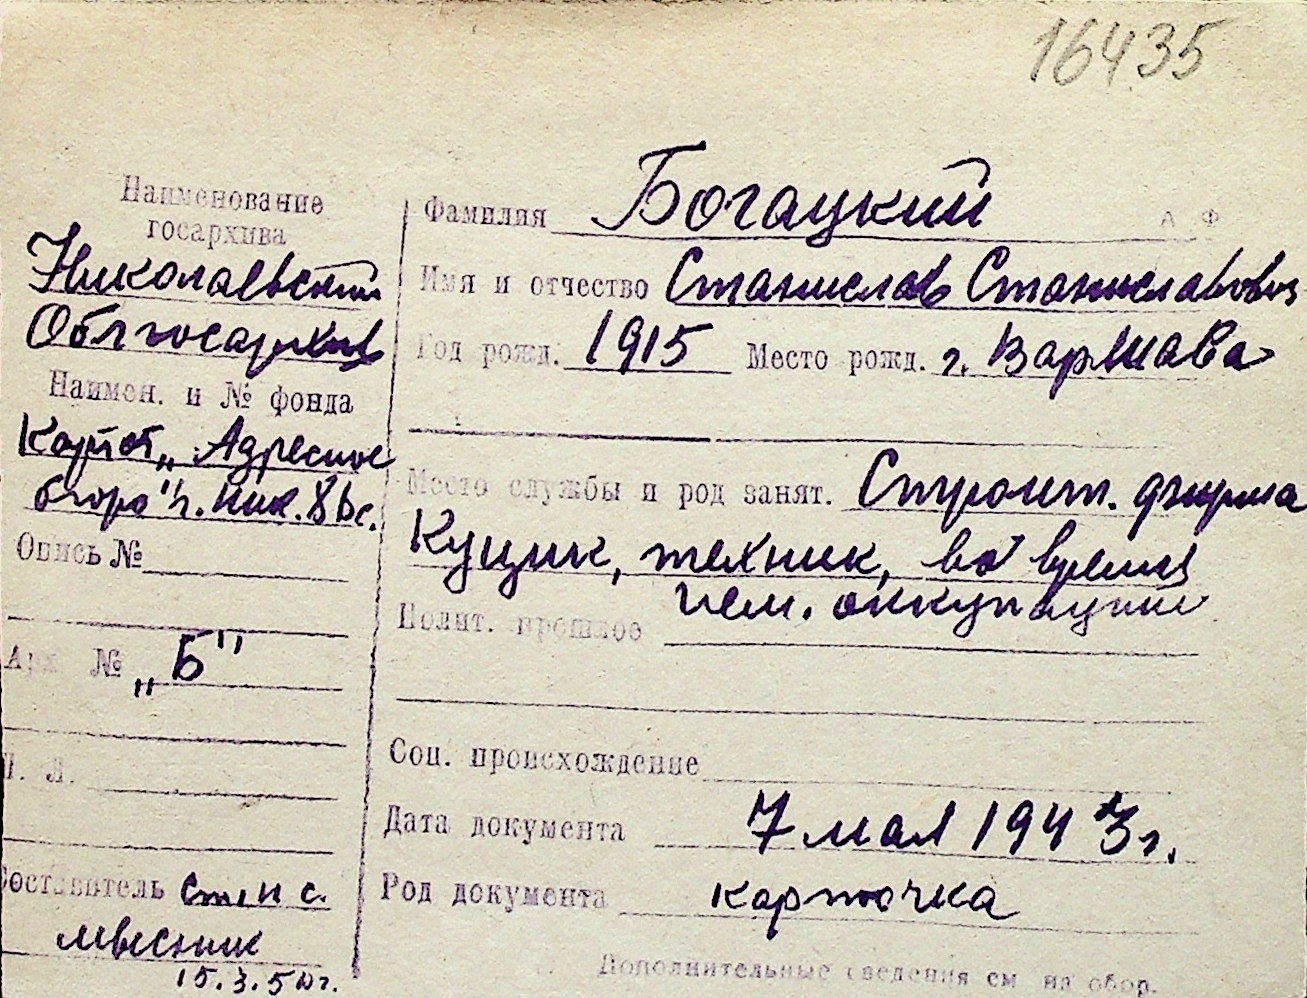 16435
Наименование
госархива
Николаевский
Облгосархив
Наимен. и № фонда
Картот. „Адресное
бюро" г. Ник.
Опись №
Арх. № „Б"
Л. Л.
Составитель Ст. н. с.
15.3.50г.
Фамилия Богацкий
А Ф
Имя и отчество Станислав Станиславович
Год рожд. 1915 Место рожд. г. Варшава
Место службы и род занят. Строит. фирма
Куцик, техник, во время
нем. оккупации
Полит. прошлое
Соц. происхождение
Дата документа 7 мая 1943г.
Род документа карточка
Дополнительные сведения см на обор.